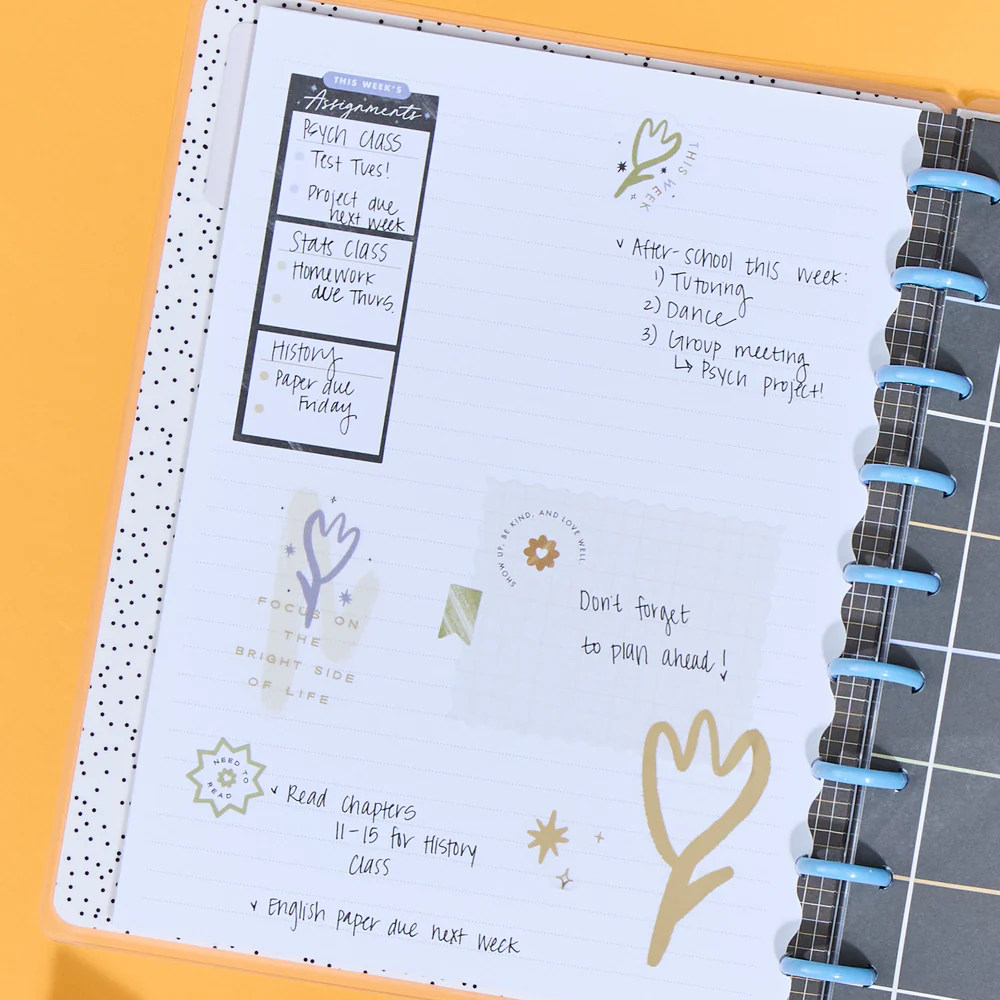 THIS WEEK'S
Assignments
Psych Class
Test Tues!
Project due
next week
Stats Class
Homework
due Thurs.
History
Paper due
Friday
THIS WEEK
After-school this week:
1) Tutoring
2) Dance
3) Group meeting
↳ Psych project!
FOCUS ON
THE
BRIGHT SIDE
OF LIFE
SHOW UP, BE KIND, AND LOVE WELL
Don't forget
to plan ahead!
NEED TO
READ
Read Chapters
11-15 for History
Class
English paper due next week